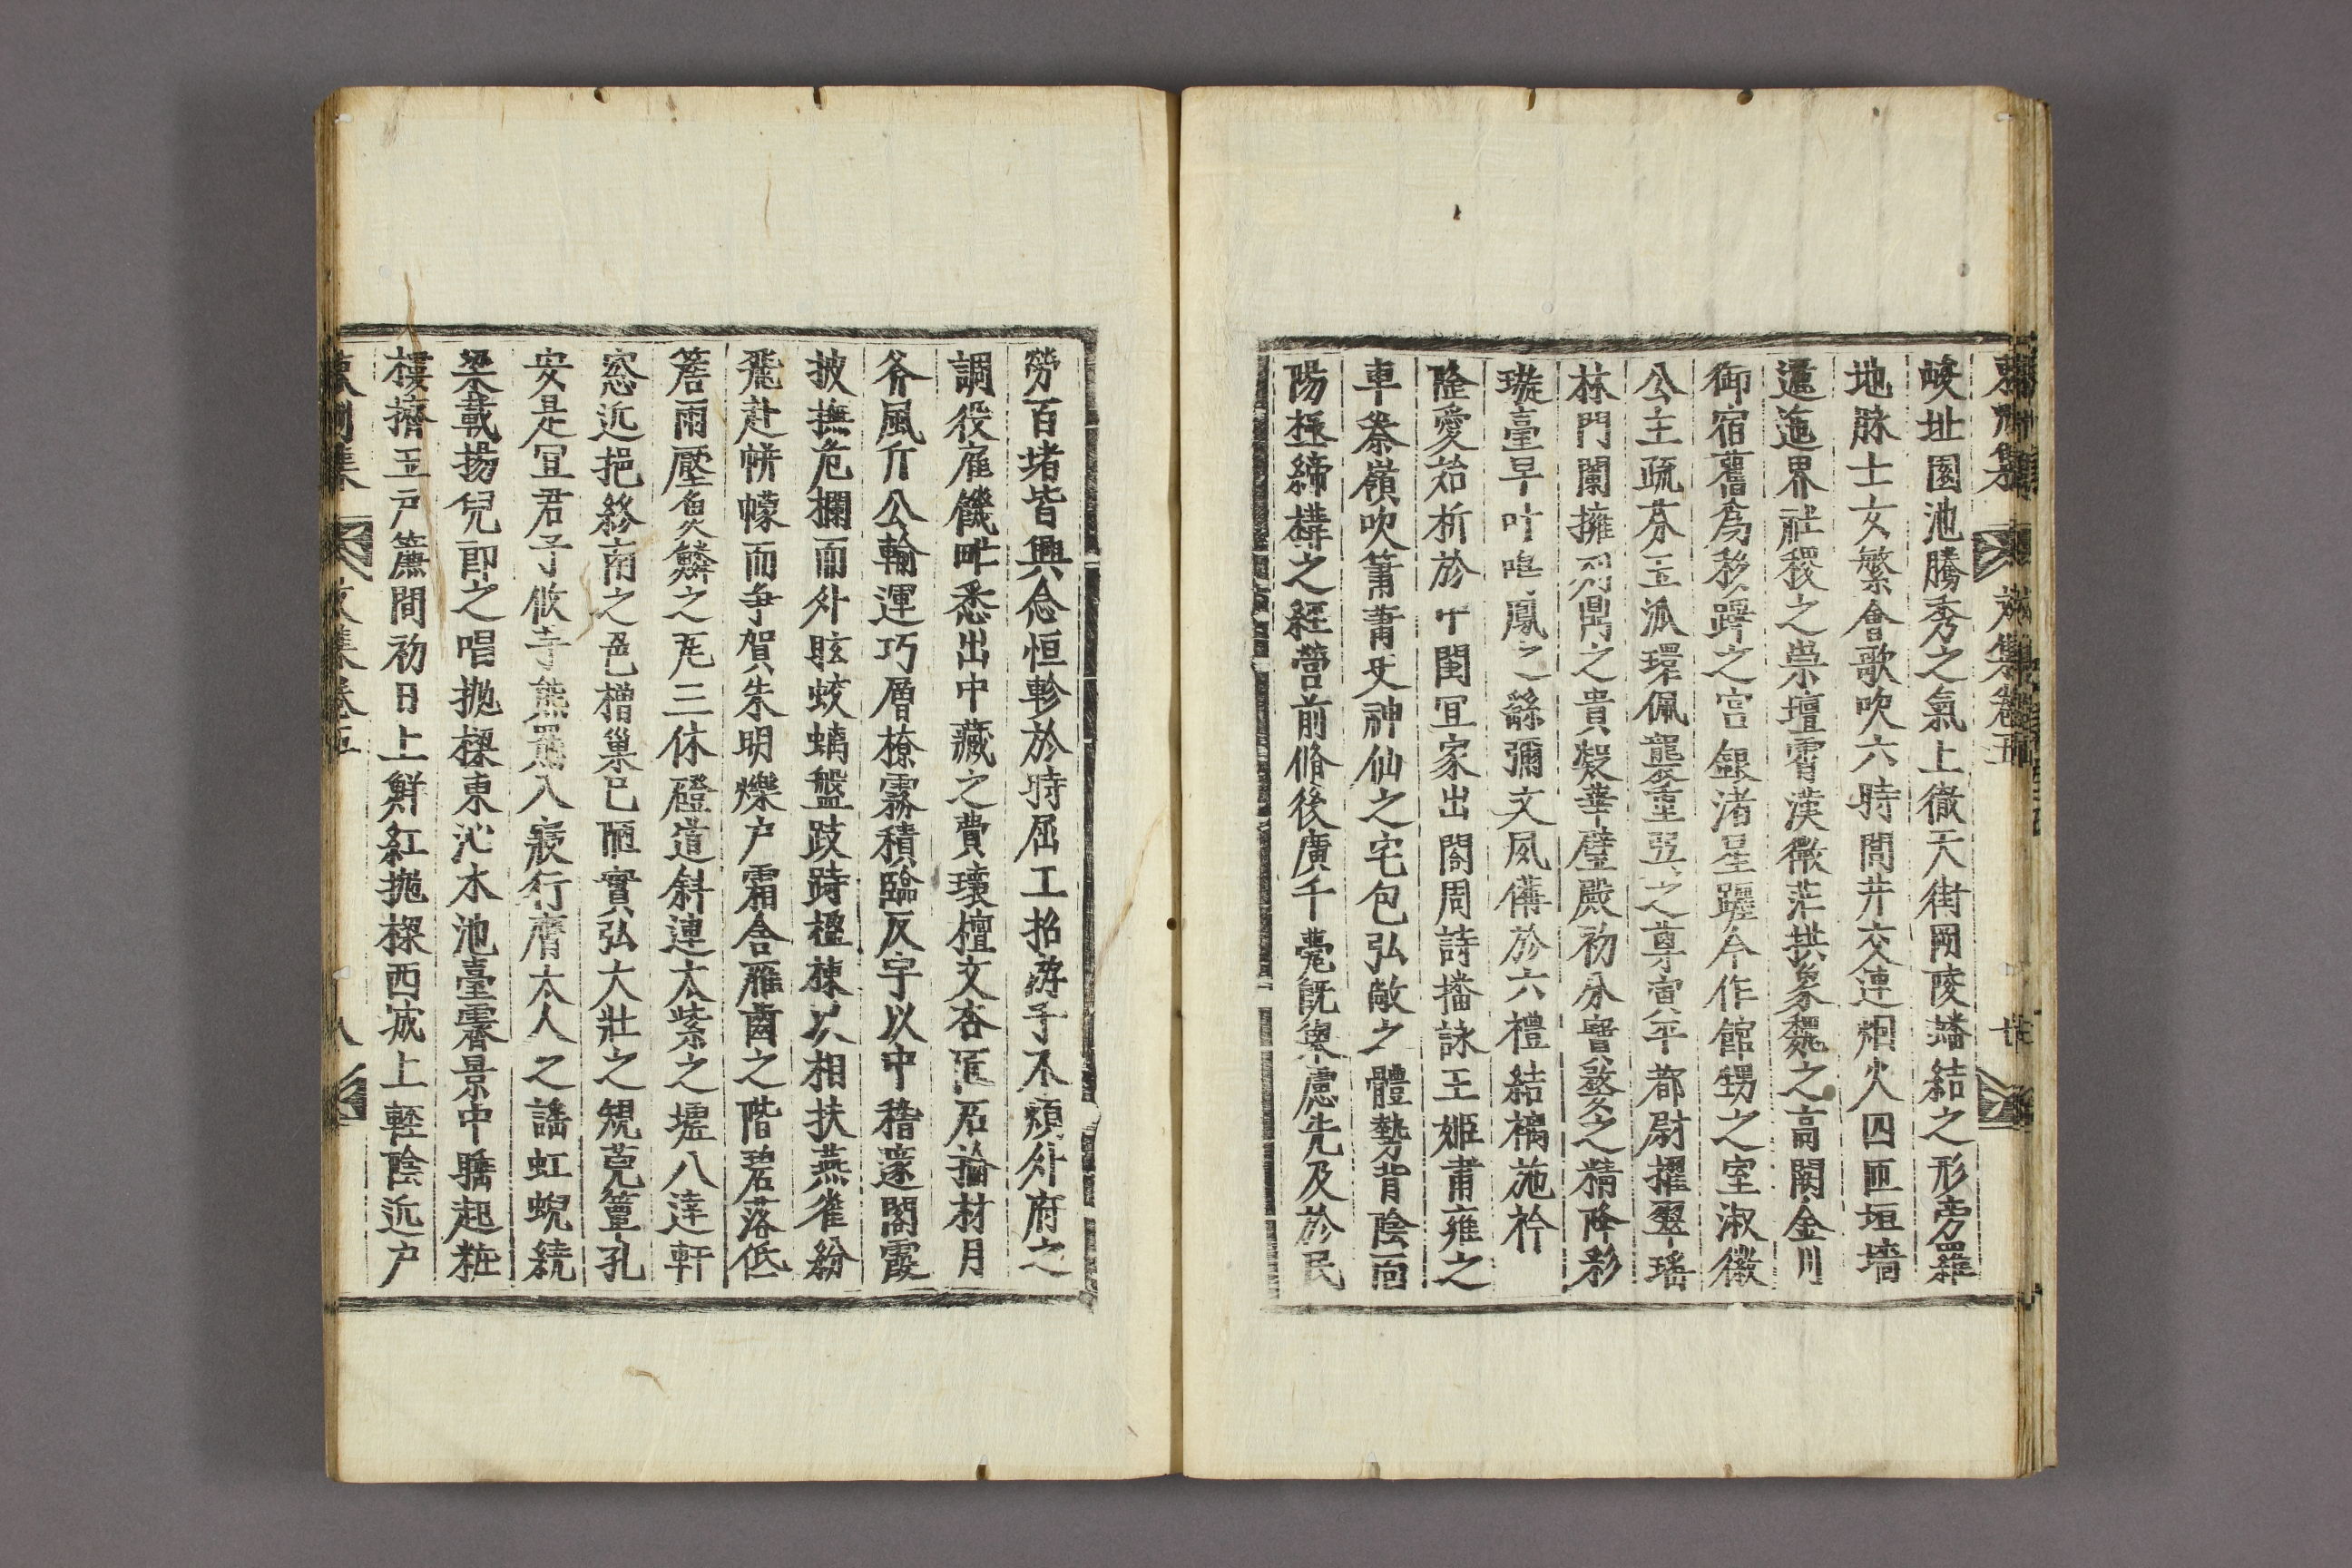 東州集 文集卷五
峻址園池騰秀之氣上徹天街岡陵蟠結之形旁羅
地脉士女繁會歌吹六時閭井交連烟火四匝垣墻
邐迤界社稷之崇壇霄漢微茫拱象魏之高闕金川
御宿舊爲移蹕之宮銀渚星躔今作館甥之室淑徽
公主疏芬玉派環佩龔重巽之尊寅平都尉擢翠瑤
林門闌擁列鼎之貴凝華璧殿初分寶婺之精降彩
璇臺早叶鳴鳳之繇彌文夙備於六禮結褵施衿
隆愛始析於中閨宜家出閤周詩播詠王姬肅雍之
車秦嶺吹簫蕭史神仙之宅包弘敞之體勢背陰面
陽極締構之經營前脩後廣千甍旣擧慮先及於民
勞百堵皆興念恒軫於時屈工招游手不煩外府之
調役雇饑甿悉出中藏之費瓌檀文杏匠石掄材月
斧風斤公輸運巧層橑霧積臨反宇以中稽邃閣霞
披撫危欄而外眩蛟螭盤跂跱楹棟以相扶燕雀紛
飛赴帲幪而爭賀朱明爍户霜含雁齒之階碧落低
簷雨壓魚鱗之瓦三休磴道斜連太紫之墟八達軒
窓近挹終南之色橧巢已陋實弘大壯之䂓莞簟孔
安是宜君子攸寺熊羆入寢行膺太人之謠虹蜺繞
梁載揚兒郎之唱抛樑東沁水池臺霽景中曉起粧
樓擠玉戸簾間初日上鮮紅抛樑西宬上輕陰近户
東州集 文集卷五 八